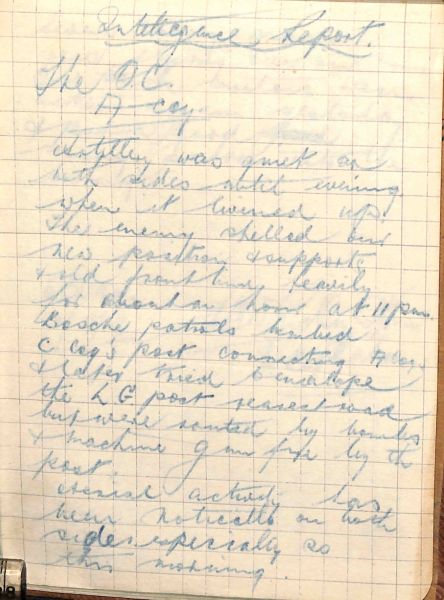 Intelligence Report.
The O.C.
A coy.
Artillery was quiet on
both sides until evening
when it livened up.
The enemy shelled our
new position & supports
& old front line heavily
for about an hour at 11 pm.
Bosche patrols bombed
C coy's post connecting A coy
& later tried to envelope
the L G post nearest road
but were routed by bombs
& machine gun fire by the
post.
Aerial activity has
been noticable on both
sides especially so
this morning.